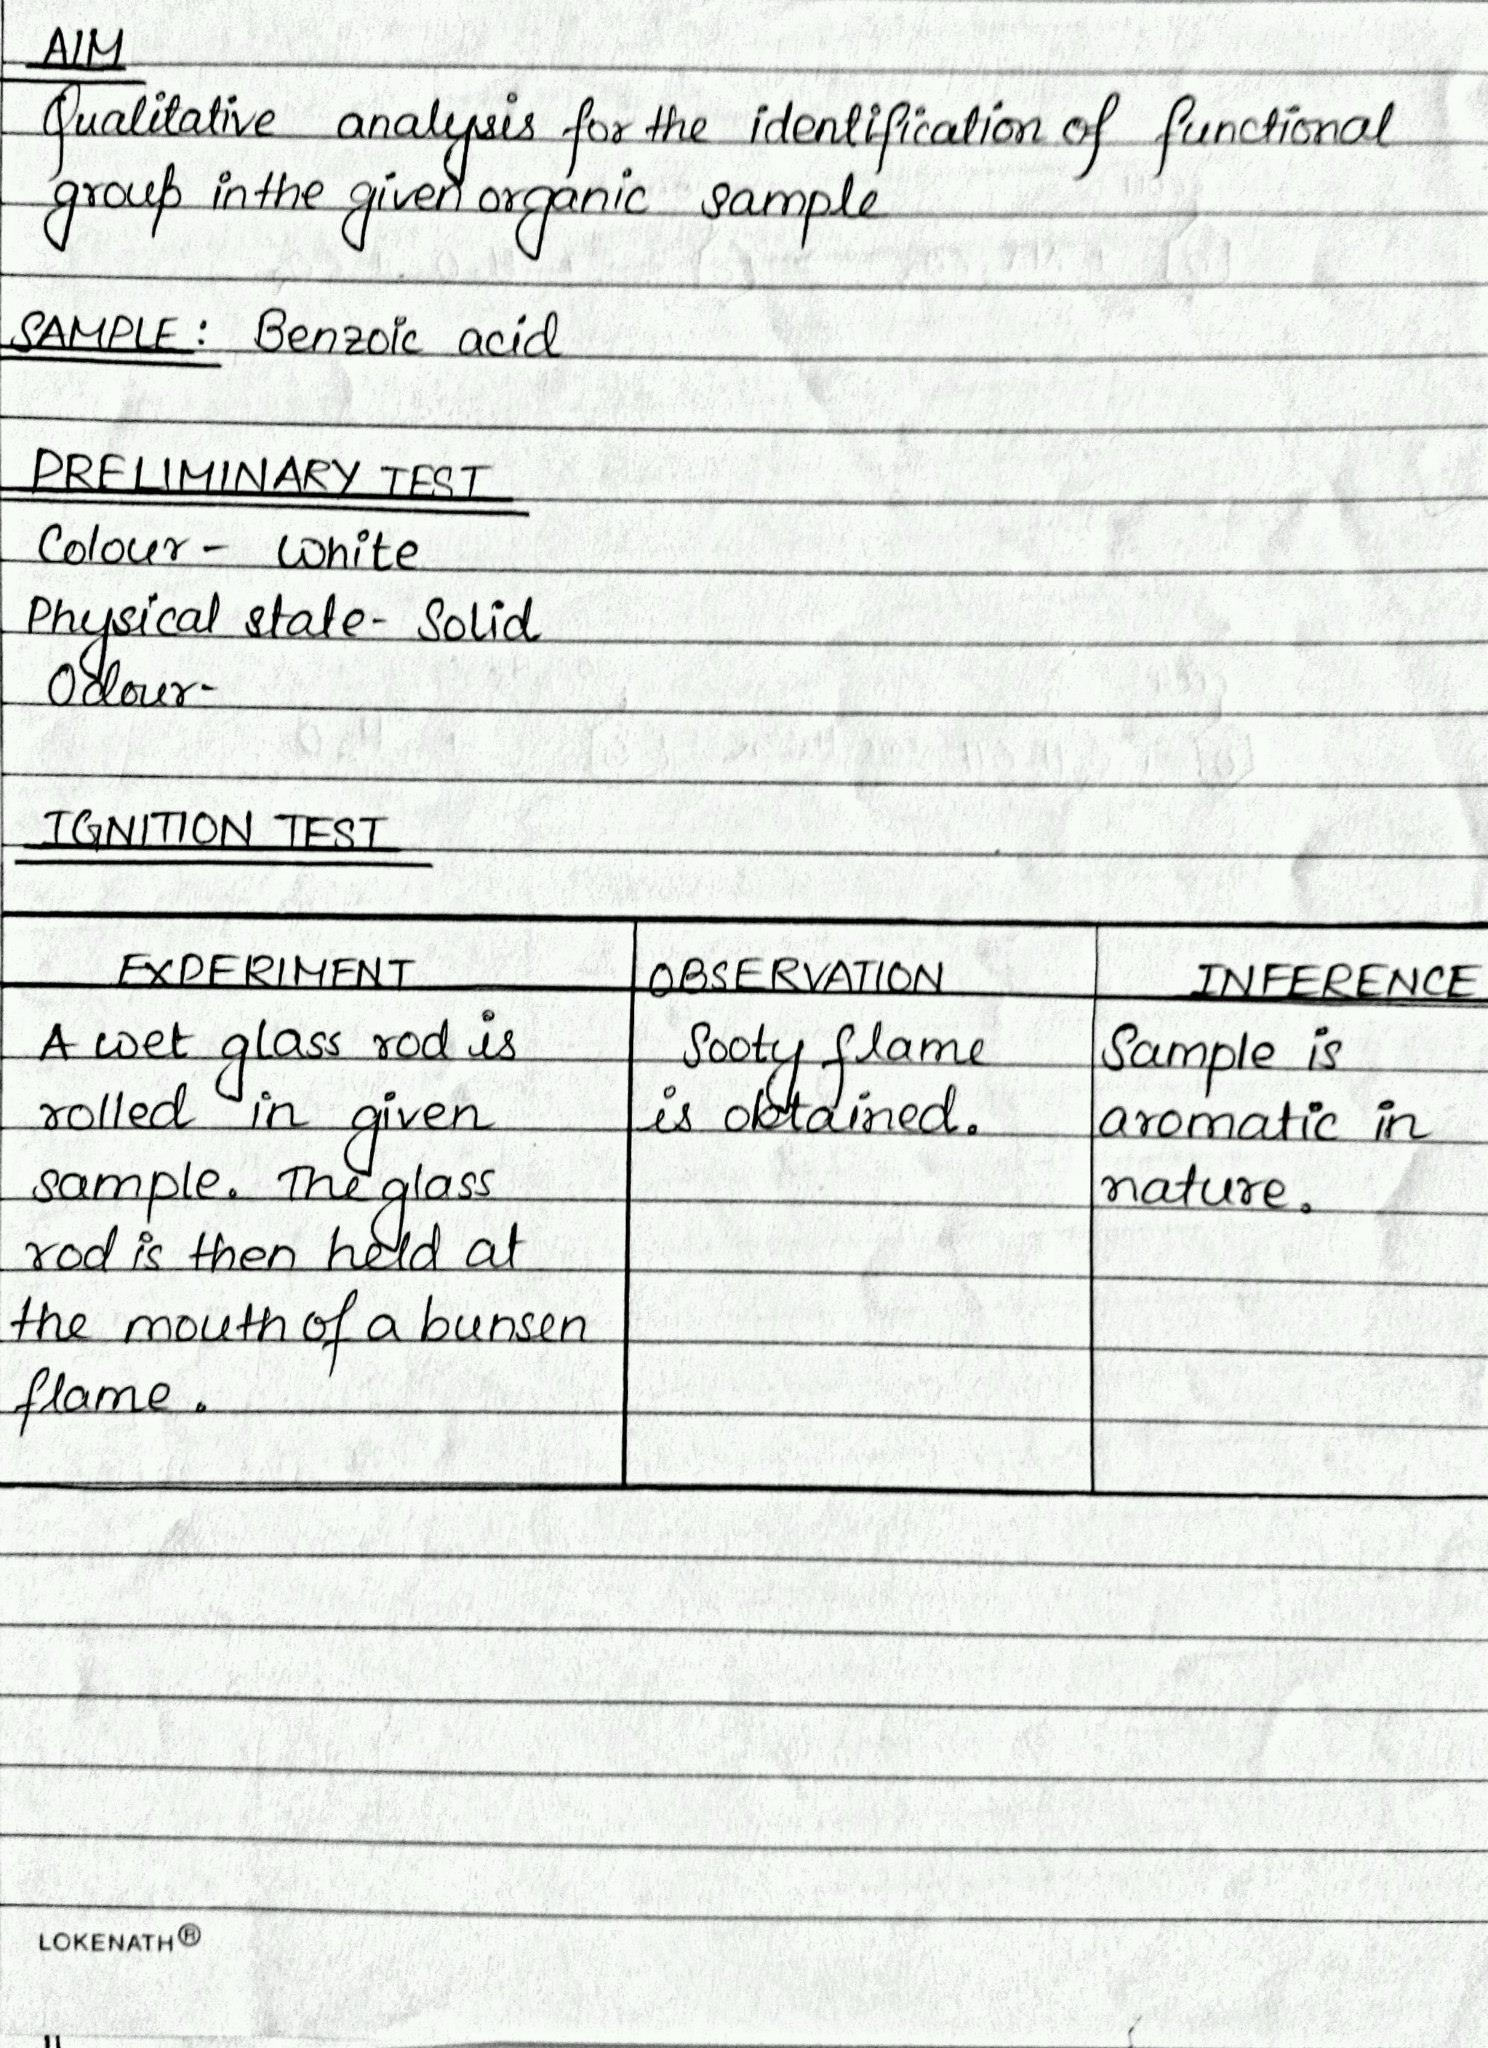 AIM
Qualitative analysis for the identification of functional
group in the given organic sample
SAMPLE: Benzoic acid
PRELIMINARY TEST
Colour - White
Physical state - Solid
Odour -
IGNITION TEST
EXPERIMENT
A wet glass rod is
rolled in given
sample. The glass
rod is then held at
the mouth of a bunsen
flame.
OBSERVATION
Sooty flame
is obtained.
INFERENCE
Sample is
aromatic in
nature.
LOKENATH®